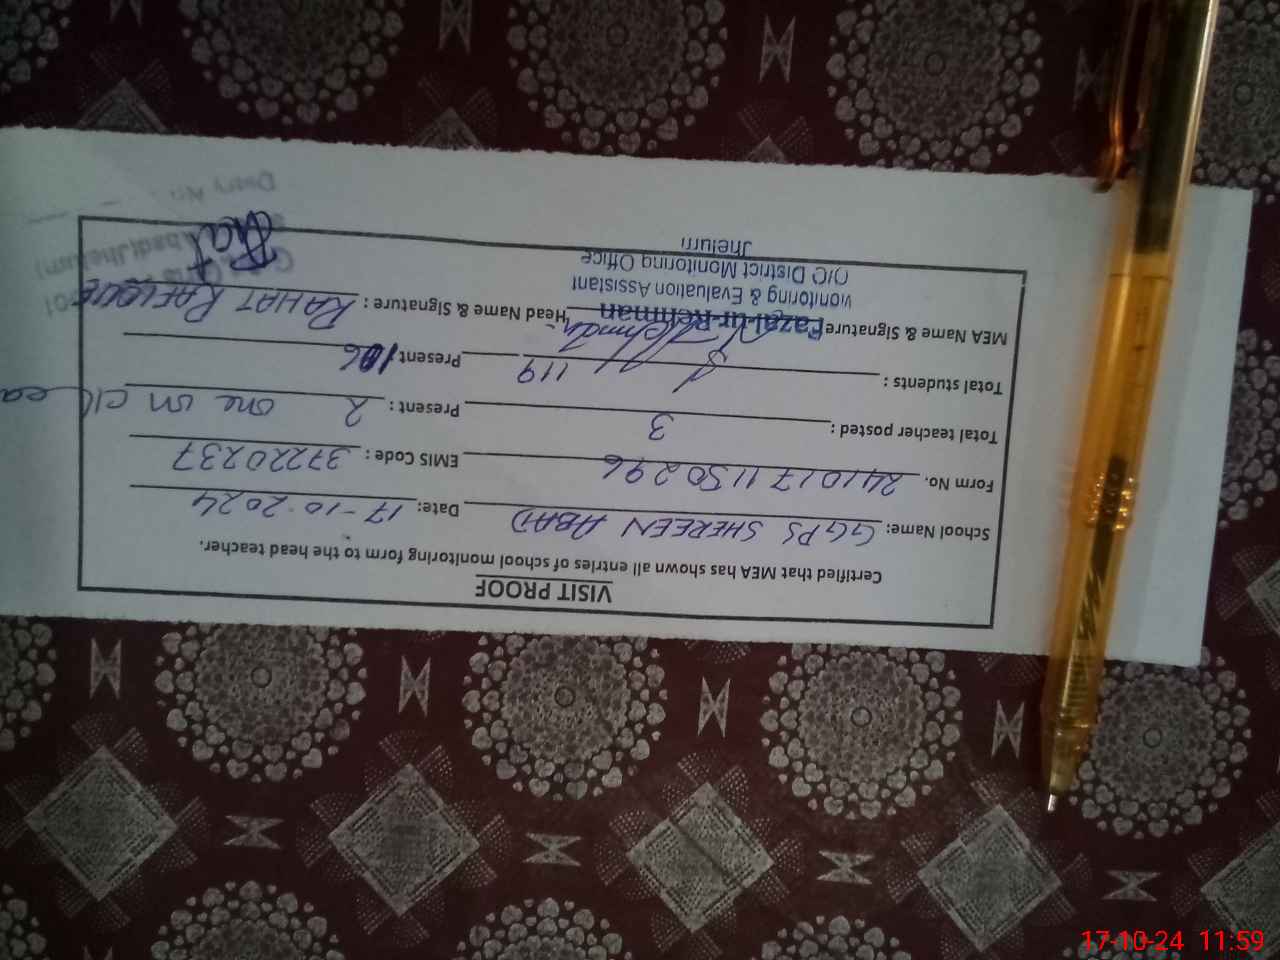 VISIT PROOF
Certified that MEA has shown all entries of school monitoring form to the head teacher.
School Name: GGPS SHEREEN ABAD Date: 17-10-2024
Form No. 241017 1150296 EMIS Code : 37220237
Total teacher posted : 3 Present : 2 one on
Total students : 119 Present : 106
MEA Name & Signature Fazal-ur-Rehman Head Name & Signature : RAHAT RAFIQUE
Monitoring & Evaluation Assistant
O/O District Monitoring Office
Jhelum
17-10-24 11:59